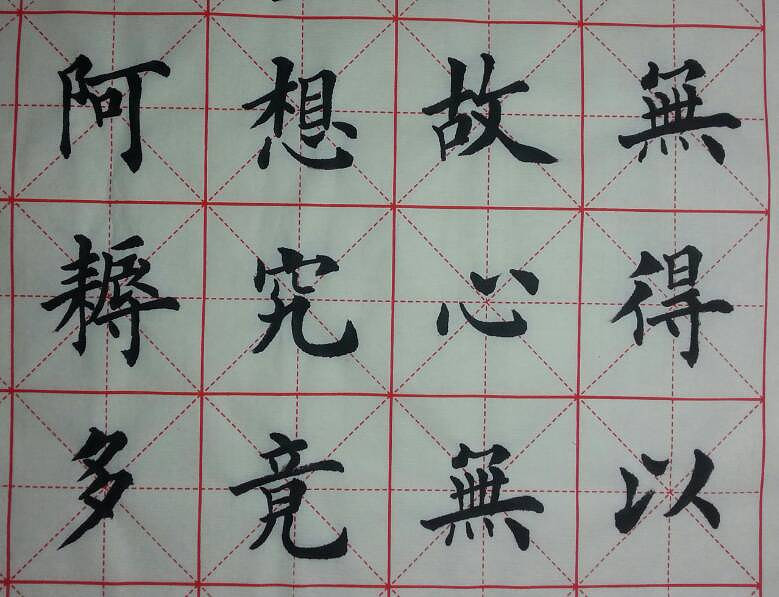 無得以
故心無
想究竟
阿耨多